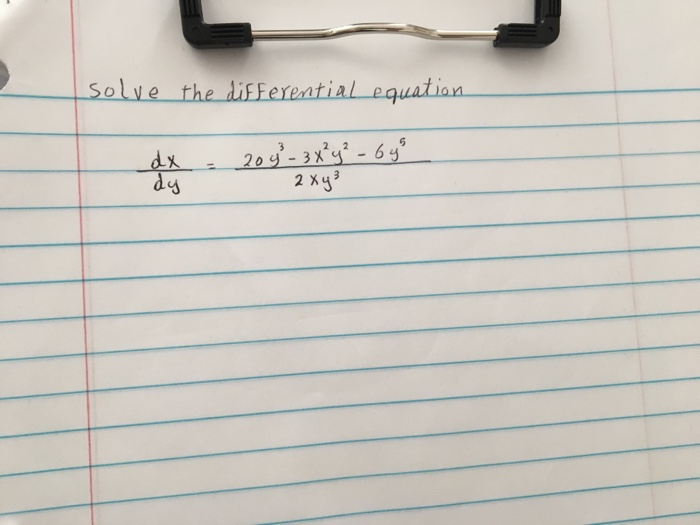 solve the differential equation
dx/dy = (20y³ - 3x²y² - 6y⁵)/(2xy³)